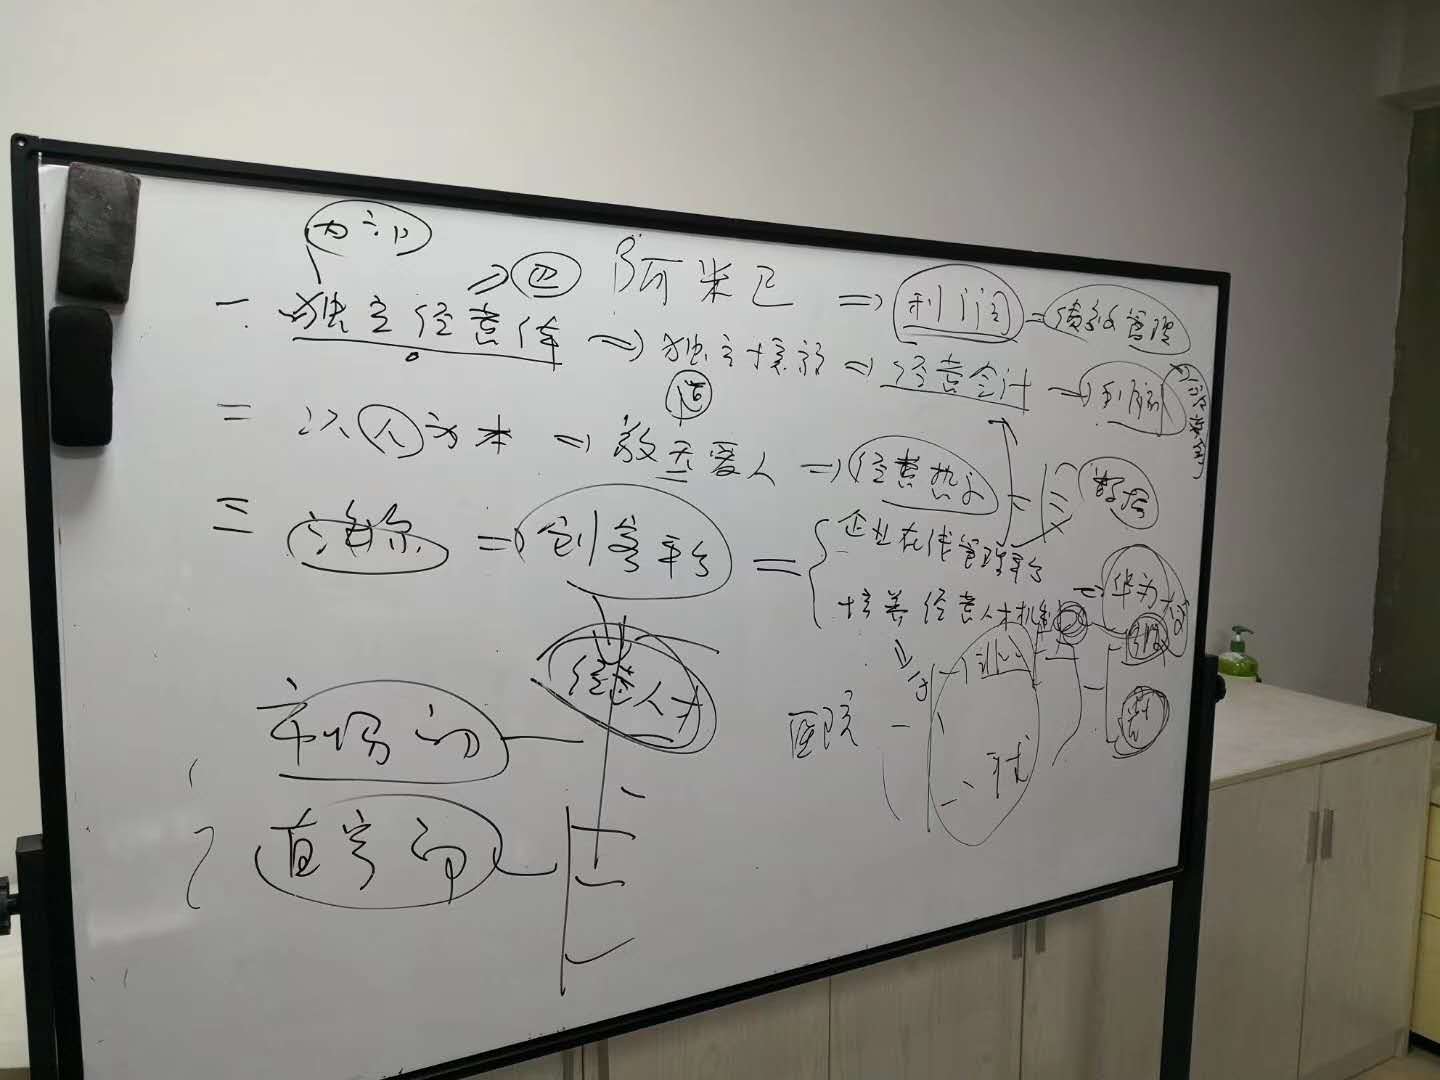 内部
四 阿米巴 => 利润 = 绩效管理
一 独立经营体 => 独立核算 => 经营会计 =>
道
二 以人为本 => 敬天爱人 => 经营哲学 = 数据
三 海尔 => 创客平台 = 企业在线管理平台
培养经营人才机制 => 华为大学
经营人才
医院
市场部
直营部